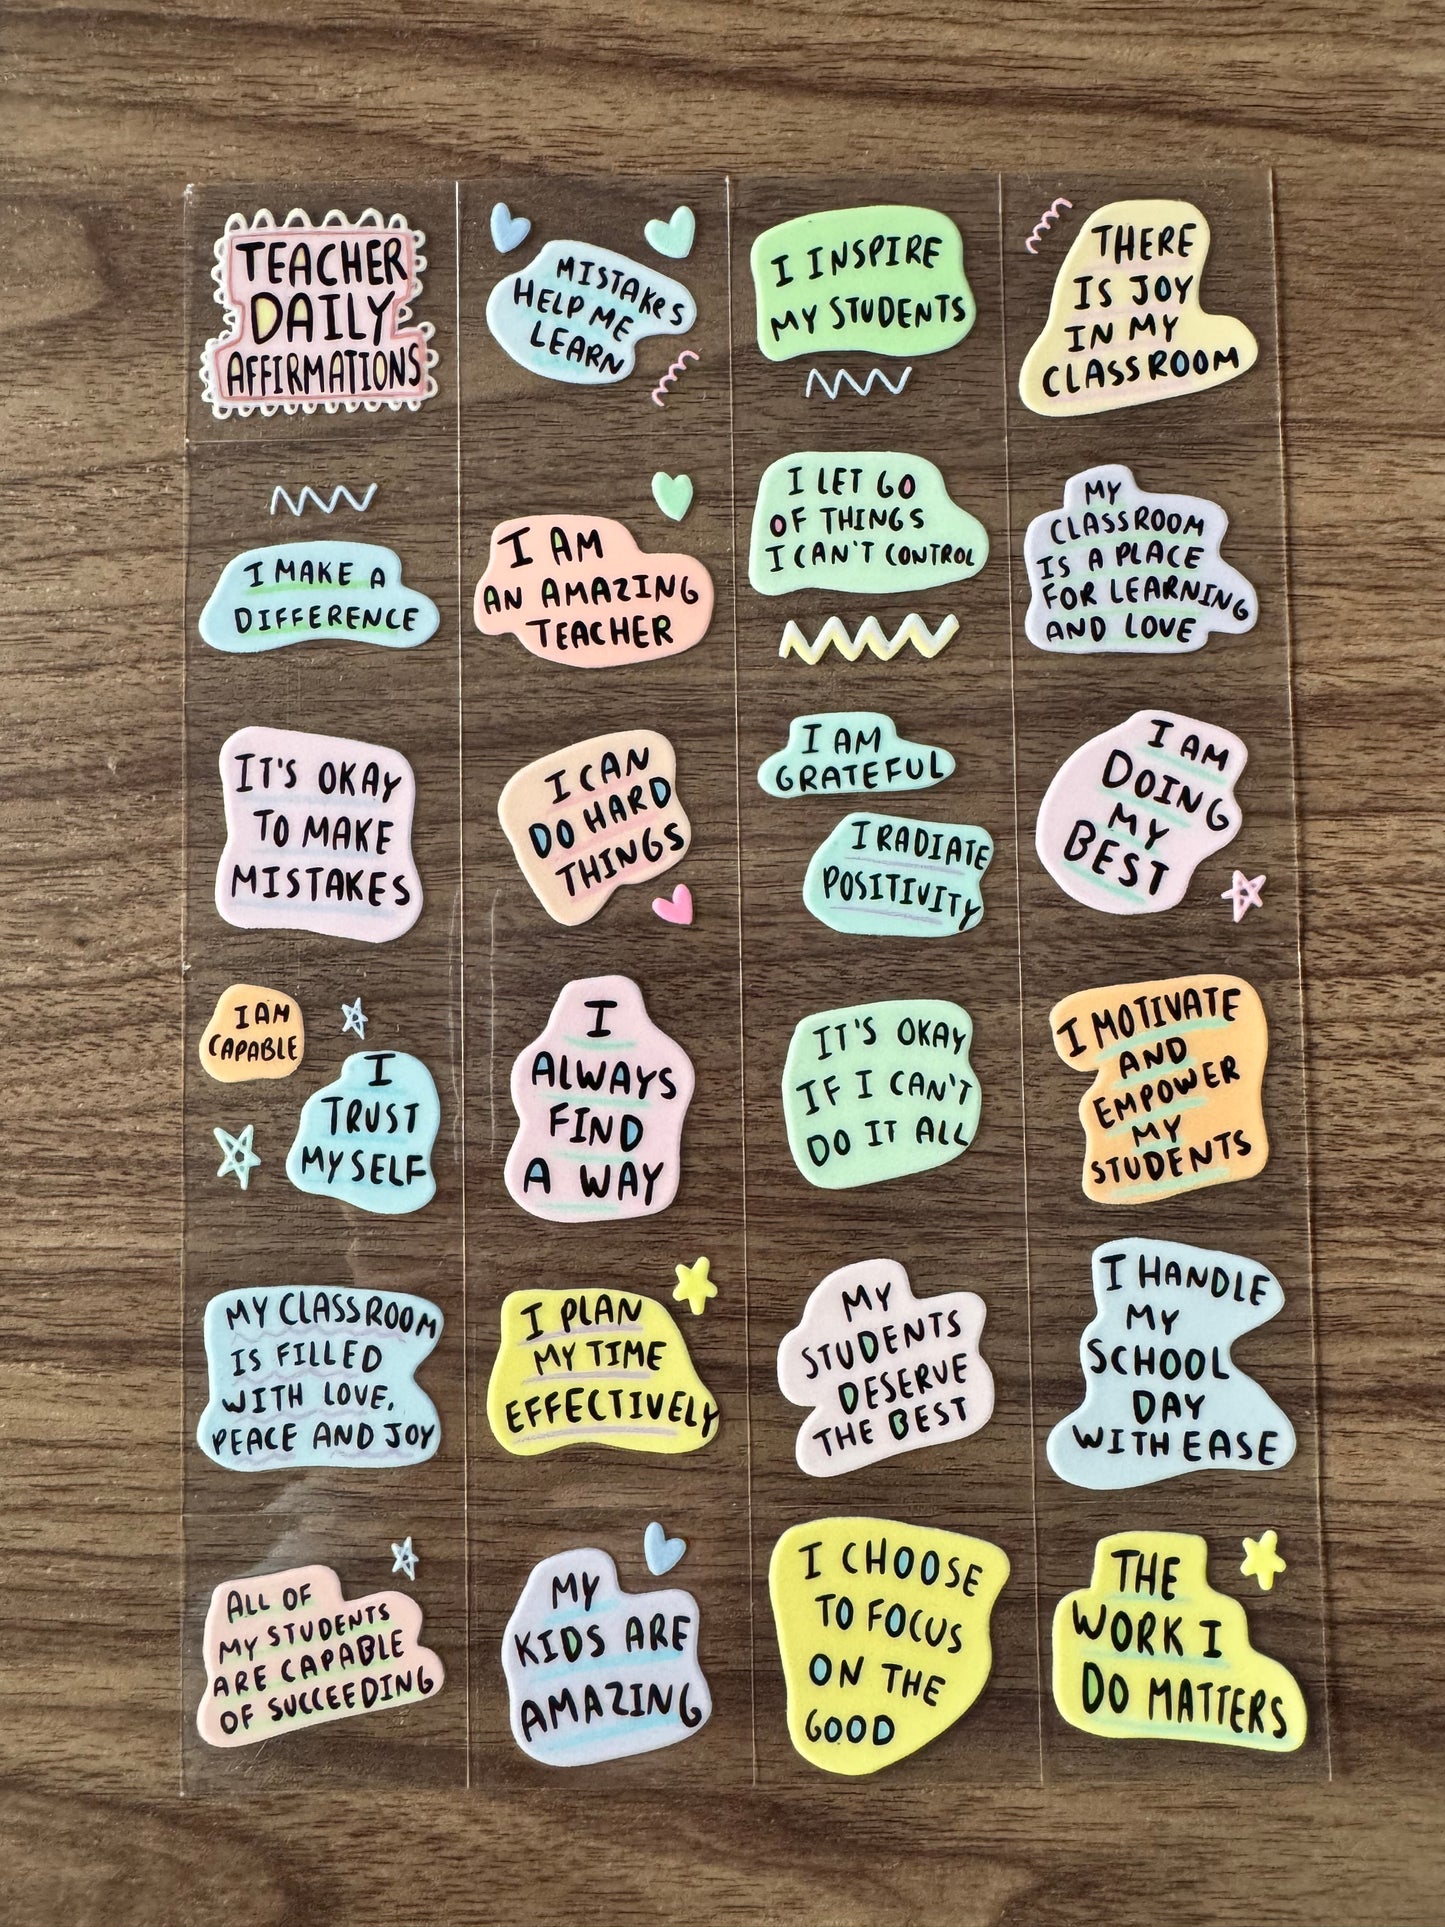 TEACHER
DAILY
AFFIRMATIONS
MISTAKES
HELP ME
LEARN
I INSPIRE
MY STUDENTS
THERE
IS JOY
IN MY
CLASSROOM
I MAKE A
DIFFERENCE
I AM
AN AMAZING
TEACHER
I LET GO
OF THINGS
I CAN'T CONTROL
MY
CLASSROOM
IS A PLACE
FOR LEARNING
AND LOVE
IT'S OKAY
TO MAKE
MISTAKES
I CAN
DO HARD
THINGS
I AM
GRATEFUL
I RADIATE
POSITIVITY
I AM
DOING
MY
BEST
I AM
CAPABLE
I
TRUST
MYSELF
I
ALWAYS
FIND
A WAY
IT'S OKAY
IF I CAN'T
DO IT ALL
I MOTIVATE
AND
EMPOWER
MY
STUDENTS
MY CLASSROOM
IS FILLED
WITH LOVE,
PEACE AND JOY
I PLAN
MY TIME
EFFECTIVELY
MY
STUDENTS
DESERVE
THE BEST
I HANDLE
MY
SCHOOL
DAY
WITH EASE
ALL OF
MY STUDENTS
ARE CAPABLE
OF SUCCEEDING
MY
KIDS ARE
AMAZING
I CHOOSE
TO FOCUS
ON THE
GOOD
THE
WORK I
DO MATTERS